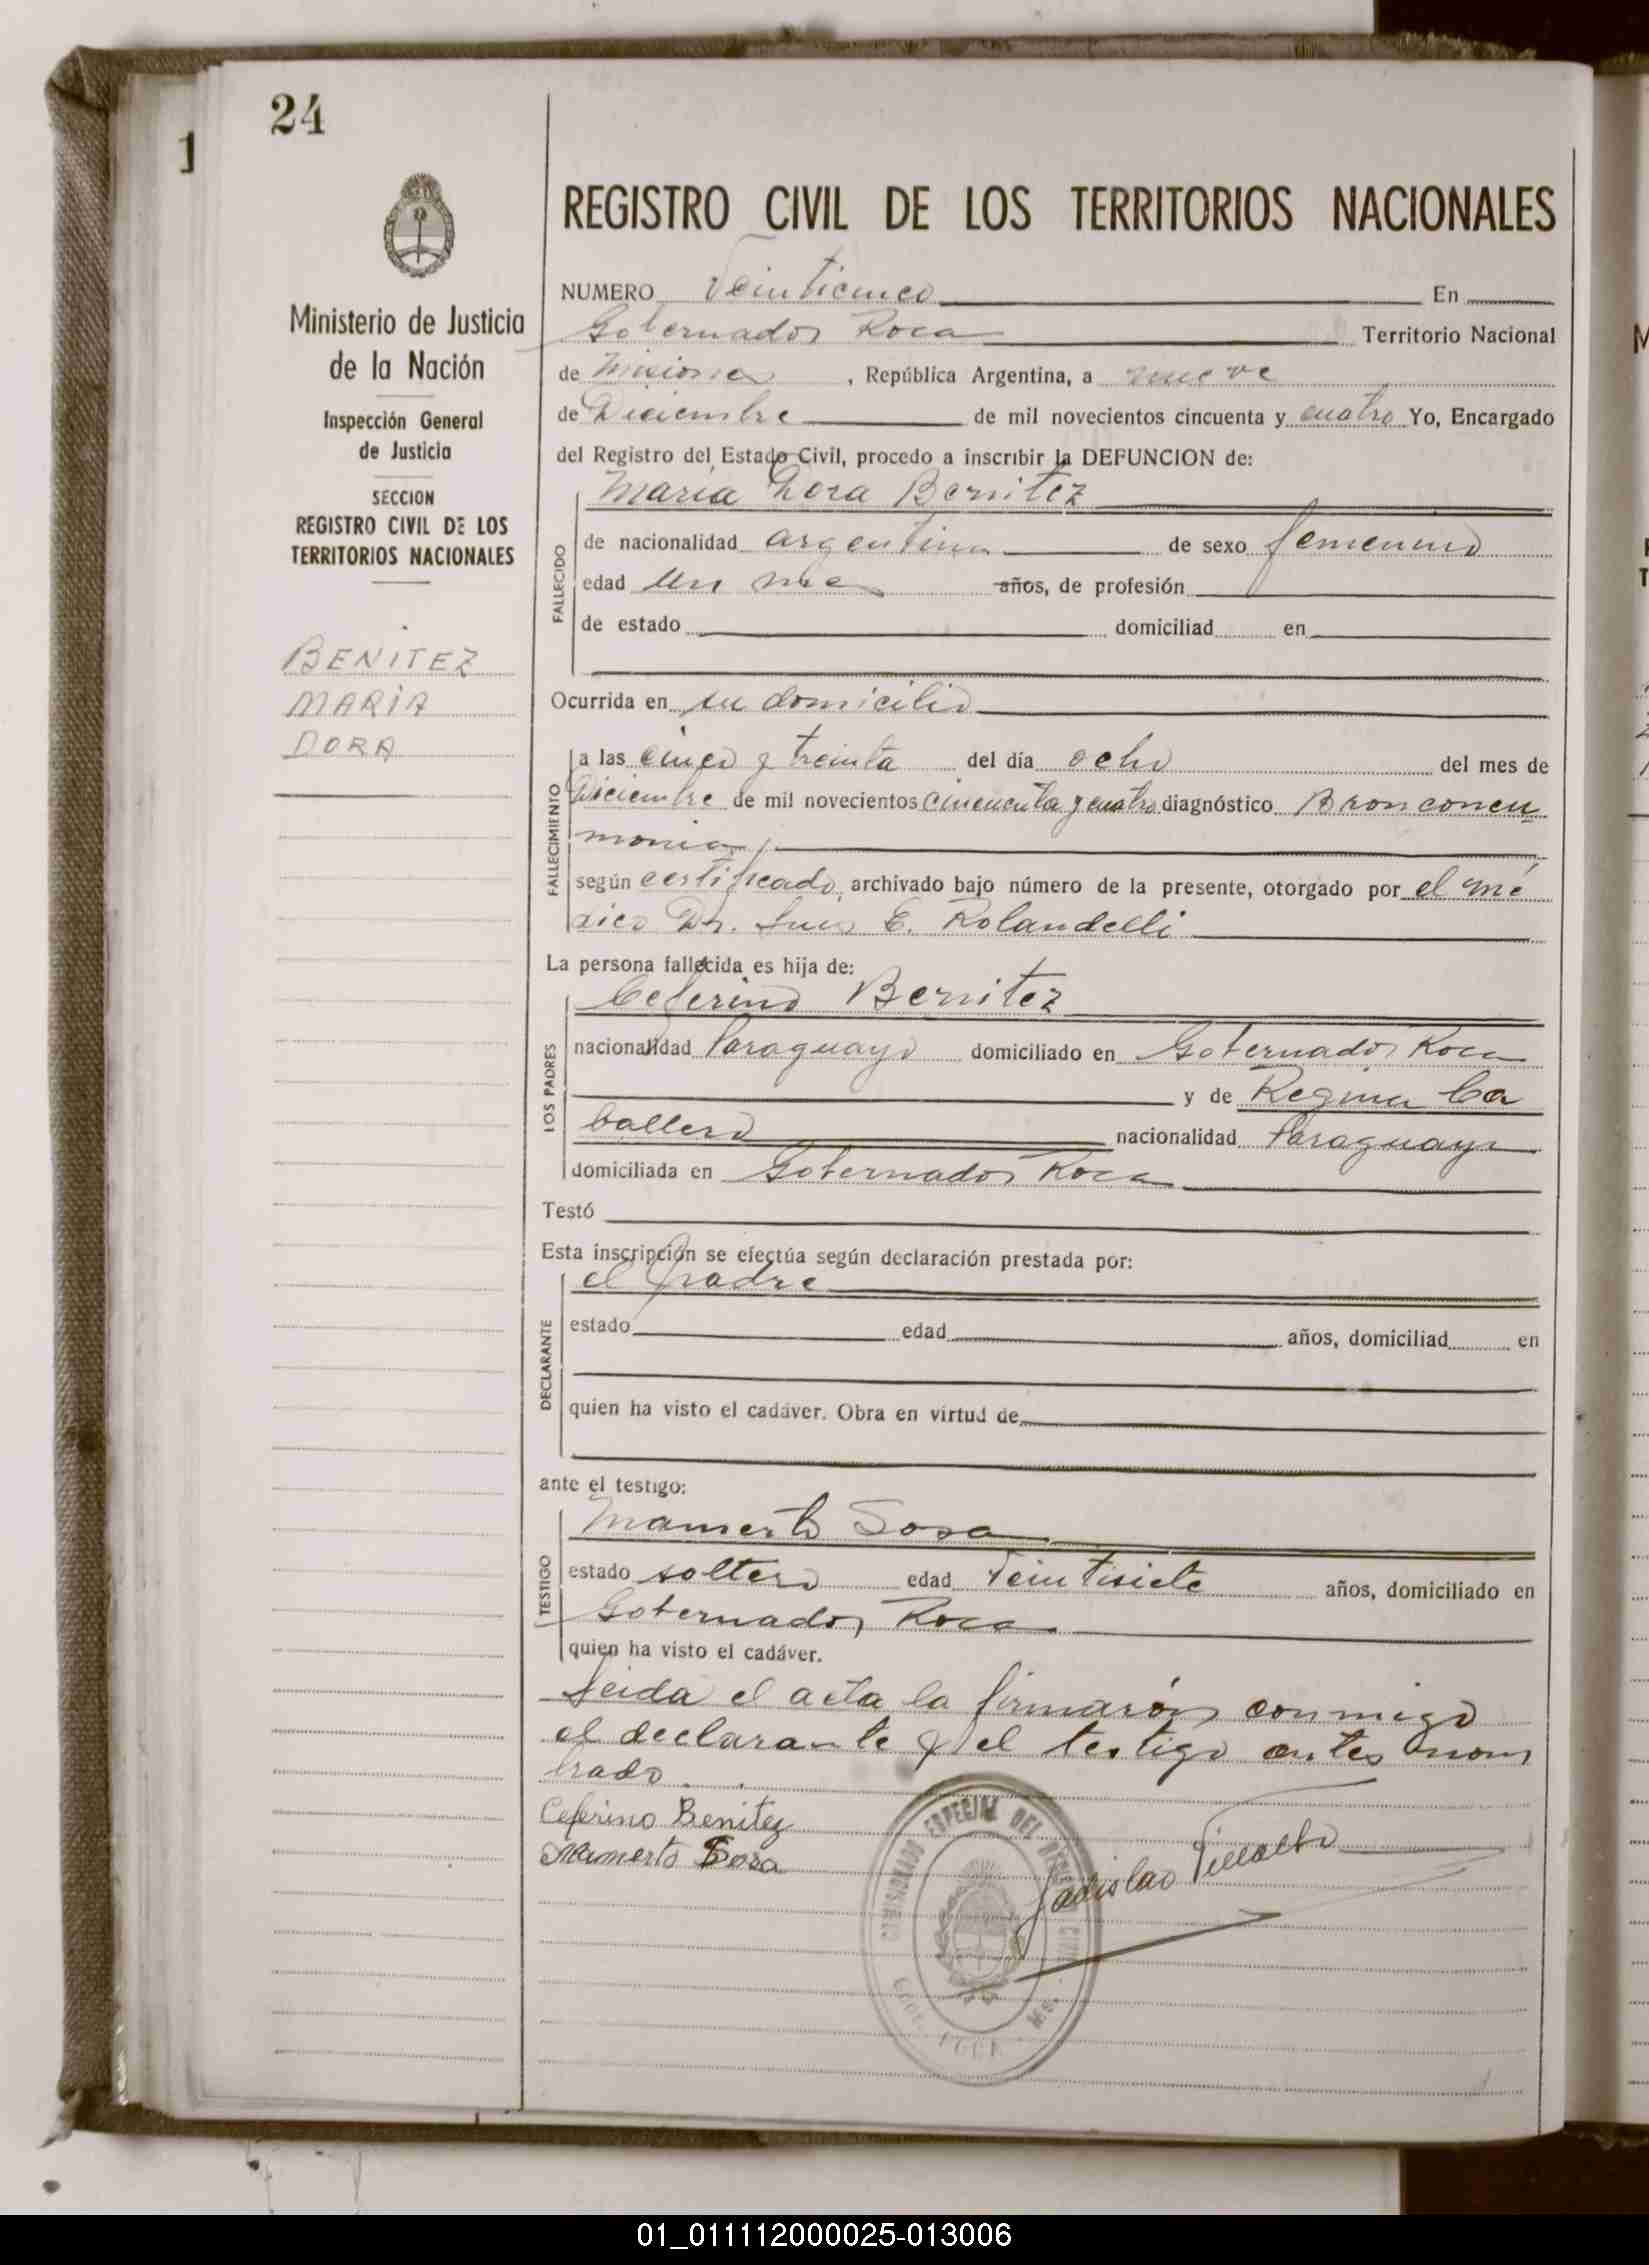 24
1
Ministerio de Justicia
de la Nación
Inspección General
de Justicia
SECCION
REGISTRO CIVIL DE LOS
TERRITORIOS NACIONALES
BENITEZ
MARIA
DORA
REGISTRO CIVIL DE LOS TERRITORIOS NACIONALES
NUMERO Veinticinco En
Gobernador Roca Territorio Nacional
de Misiones, República Argentina, a nueve
de Diciembre de mil novecientos cincuenta y cuatro Yo, Encargado
del Registro del Estado Civil, procedo a inscribir la DEFUNCION de:
FALLECIDO
María Dora Benitez
de nacionalidad argentina de sexo femenino
edad un mes años, de profesión
de estado domiciliad en
Ocurrida en su domicilio
FALLECIMIENTO
a las cinco y treinta del día ocho del mes de
Diciembre de mil novecientos cincuenta y cuatro diagnóstico Bronconeu
monia
según certificado, archivado bajo número de la presente, otorgado por el mé
dico Dr. Luis E. Rolandelli
La persona fallecida es hija de:
LOS PADRES
Ceferino Benitez
nacionalidad Paraguayo domiciliado en Gobernador Roca
y de Regina Ca
ballero nacionalidad Paraguaya
domiciliada en Gobernador Roca
Testó
Esta inscripción se efectúa según declaración prestada por:
DECLARANTE
el Padre
estado edad años, domiciliad en
quien ha visto el cadáver. Obra en virtud de
ante el testigo:
TESTIGO
Mamerto Sosa
estado soltero edad Veintisiete años, domiciliado en
Gobernador Roca
quien ha visto el cadáver.
Leida el acta la firmarón conmigo
el declarante y el testigo antes nom
brado.
Ceferino Benitez
Mamerto Sosa
Ladislao Villalba
COMISIONADO ESPECIAL DEL REGISTRO CIVIL
GDOR. ROCA MS.
01_011112000025-013006